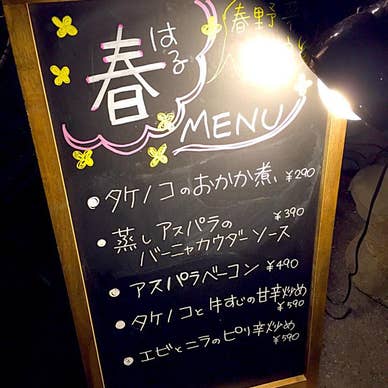 春
はる
春野
MENU
タケノコのおかか煮 ¥290
蒸しアスパラの
バーニャカウダーソース ¥390
アスパラベーコン ¥490
タケノコと牛すじの甘辛炒め
¥590
エビとニラのピリ辛炒め
¥590